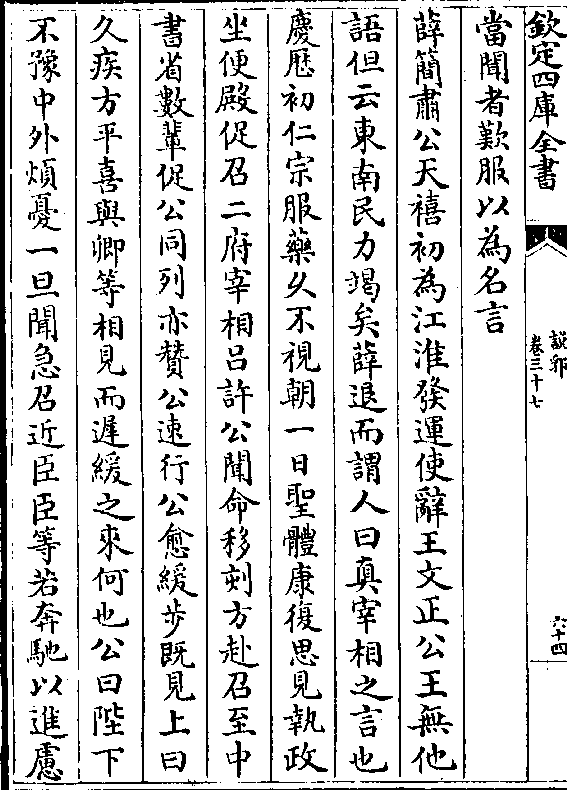 欽定四庫全書
說郛
卷三十七
六十四
當聞者歎服以為名言
薛簡肅公天禧初為江淮發運使辭王文正公王無他
語但云東南民力竭矣薛退而謂人曰真宰相之言也
慶厯初仁宗服藥乆不視朝一日聖體康復思見執政
坐便殿促召二府宰相吕許公聞命移刻方赴召至中
書省數輩促公同列亦贊公速行公愈緩步既見上曰
久疾方平喜與卿等相見而遲緩之來何也公曰陛下
不豫中外煩憂一旦聞急召近臣臣等若奔馳以進慮